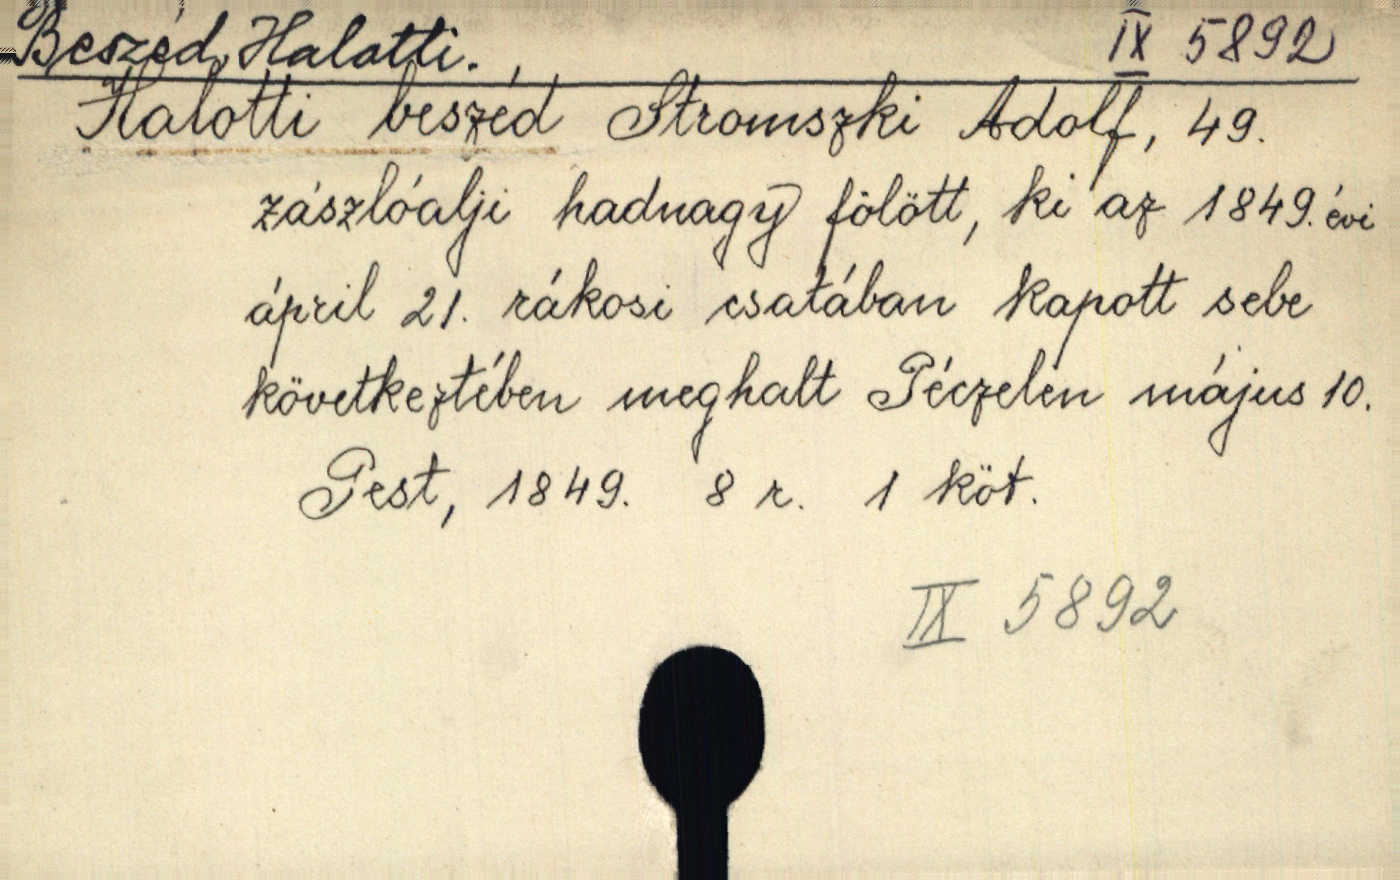 Beszéd, Halatti. IX 5892
Halotti beszéd Stromszki Adolf, 49.
zászlóalji hadnagy fölött, ki az 1849. évi
ápril 21. rákosi csatában kapott sebe
következtében meghalt Péczelen május 10.
Pest, 1849. 8 r. 1 köt.
IX 5892